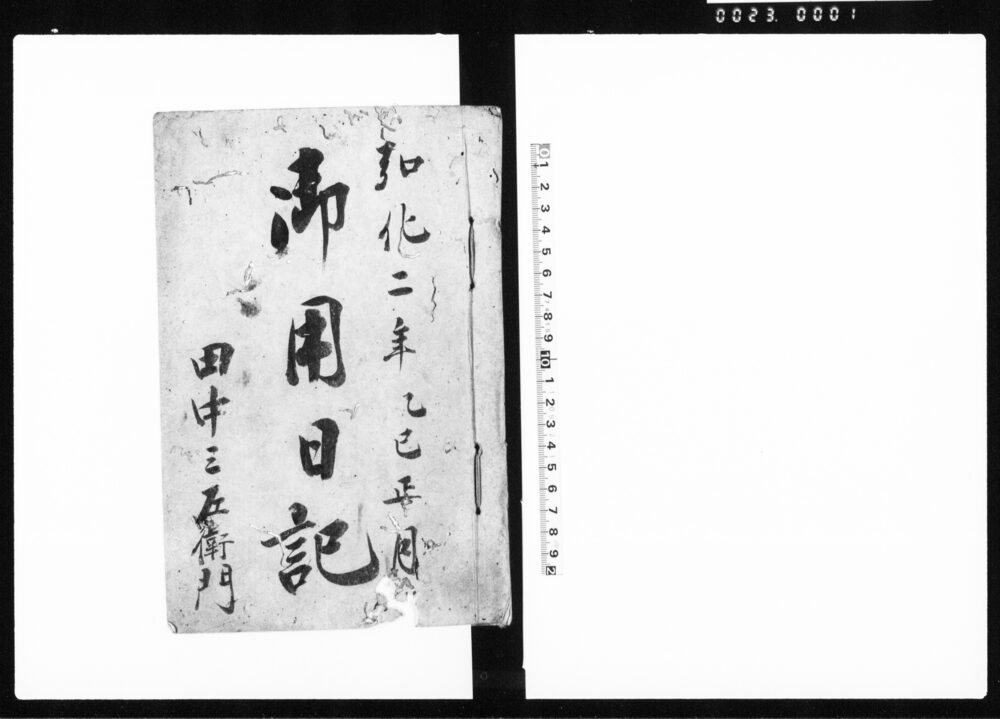 0023. 0001
弘化二年乙巳正月
御用日記
田中三左衛門
0 1 2 3 4 5 6 7 8 9 10 1 2 3 4 5 6 7 8 9 2